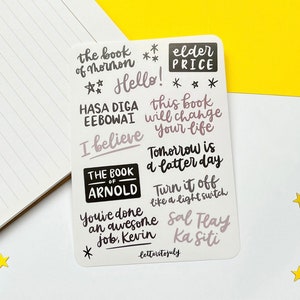 the book
of Mormon
elder
PRICE
Hello!
HASA DIGA
EEBOWAI
this book
will change
your life
I believe
Tomorrow is
a latter day
THE BOOK
OF
ARNOLD
Turn it off
like a light switch
You've done
an awesome
job, Kevin
Sal Tlay
Ka Siti